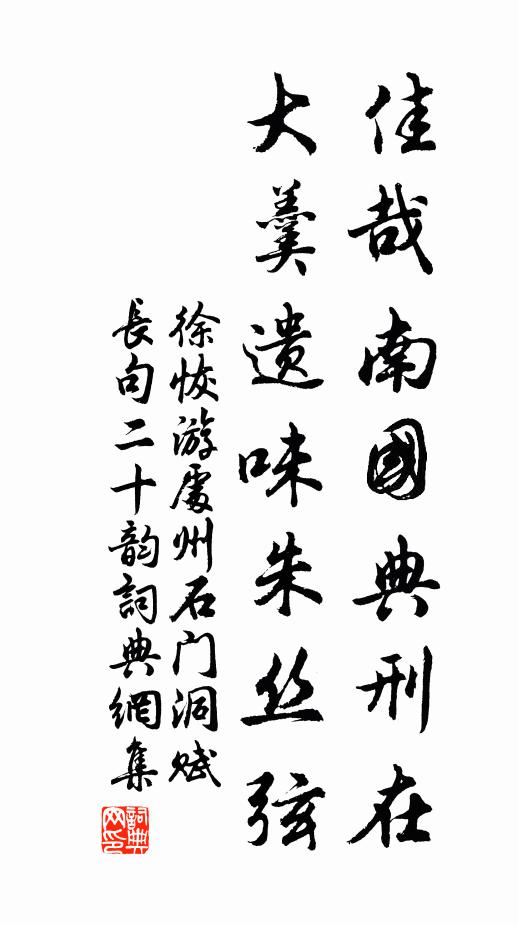 佳哉南國典刑在
大羹遗味朱丝弦
徐恢游處州石门洞赋
長句二十韵詞典網集
詞典网印